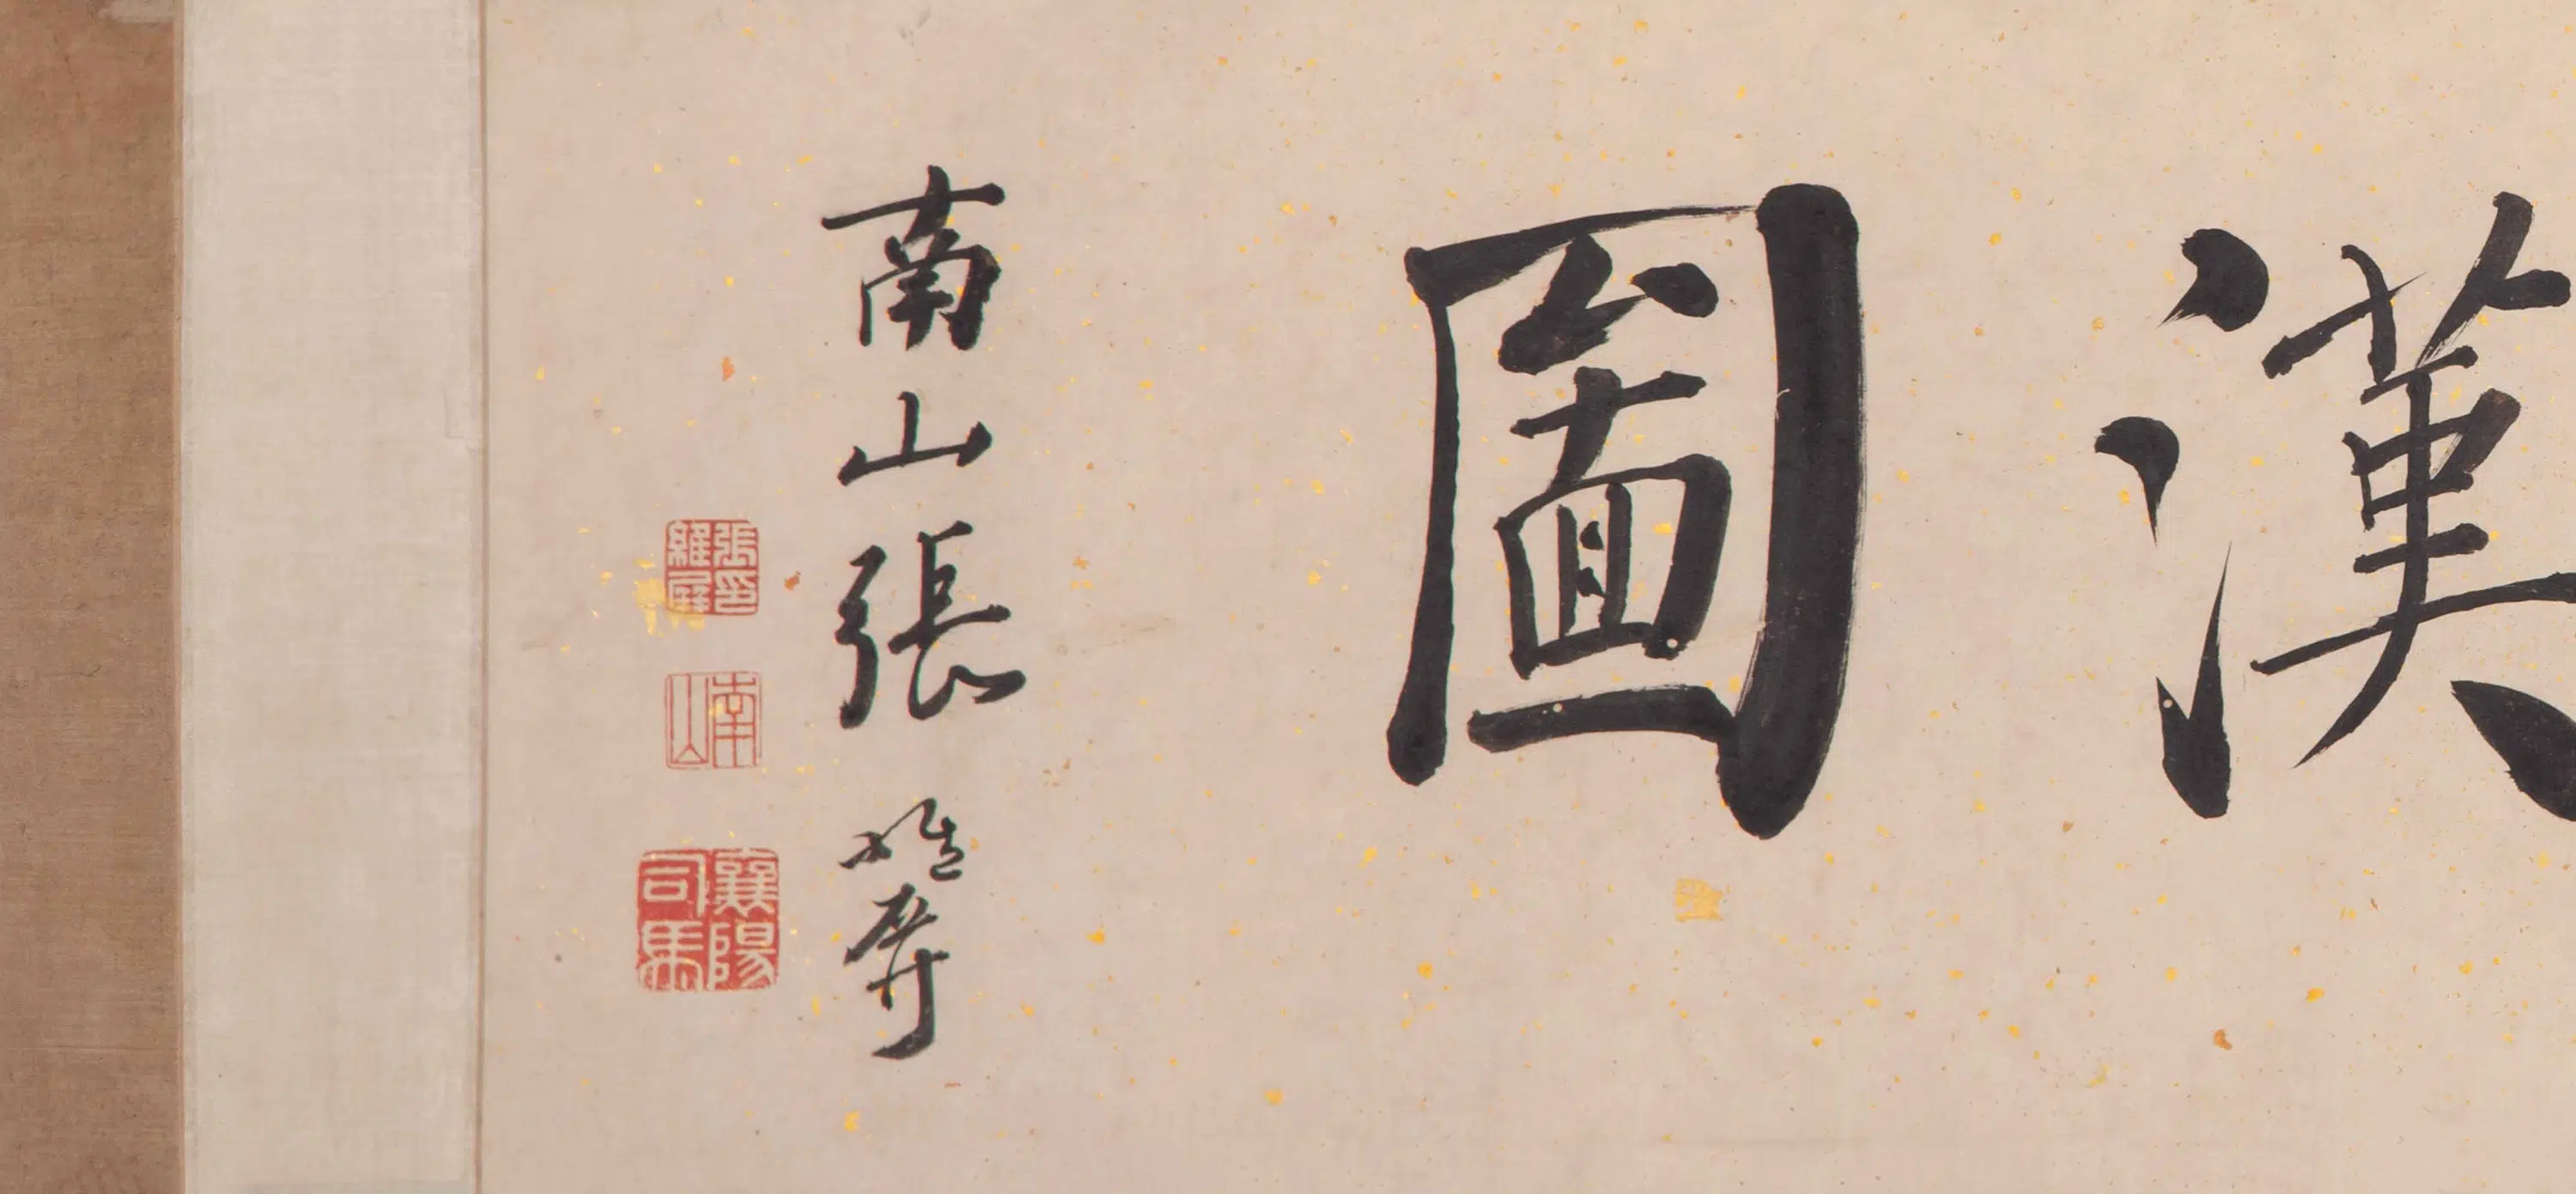 漢圖
南山張維屏
張維屏印
南山
襄陽司馬